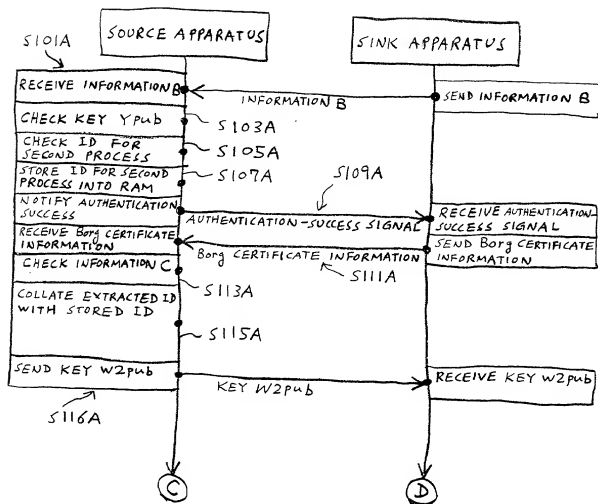 SOURCE APPARATUS
SINK APPARATUS
S101A
RECEIVE INFORMATION B
INFORMATION B
SEND INFORMATION B
CHECK KEY Ypub
S103A
CHECK ID FOR
SECOND PROCESS
S105A
STORE ID FOR SECOND
PROCESS INTO RAM
S107A
S109A
NOTIFY AUTHENTICATION
SUCCESS
AUTHENTICATION-SUCCESS SIGNAL
RECEIVE AUTHENTICATION-
SUCCESS SIGNAL
RECEIVE Borg CERTIFICATE
INFORMATION
Borg CERTIFICATE INFORMATION
SEND Borg CERTIFICATE
INFORMATION
S111A
CHECK INFORMATION C
S113A
COLLATE EXTRACTED ID
WITH STORED ID
S115A
SEND KEY W2pub
KEY W2pub
RECEIVE KEY W2pub
S116A
C
D